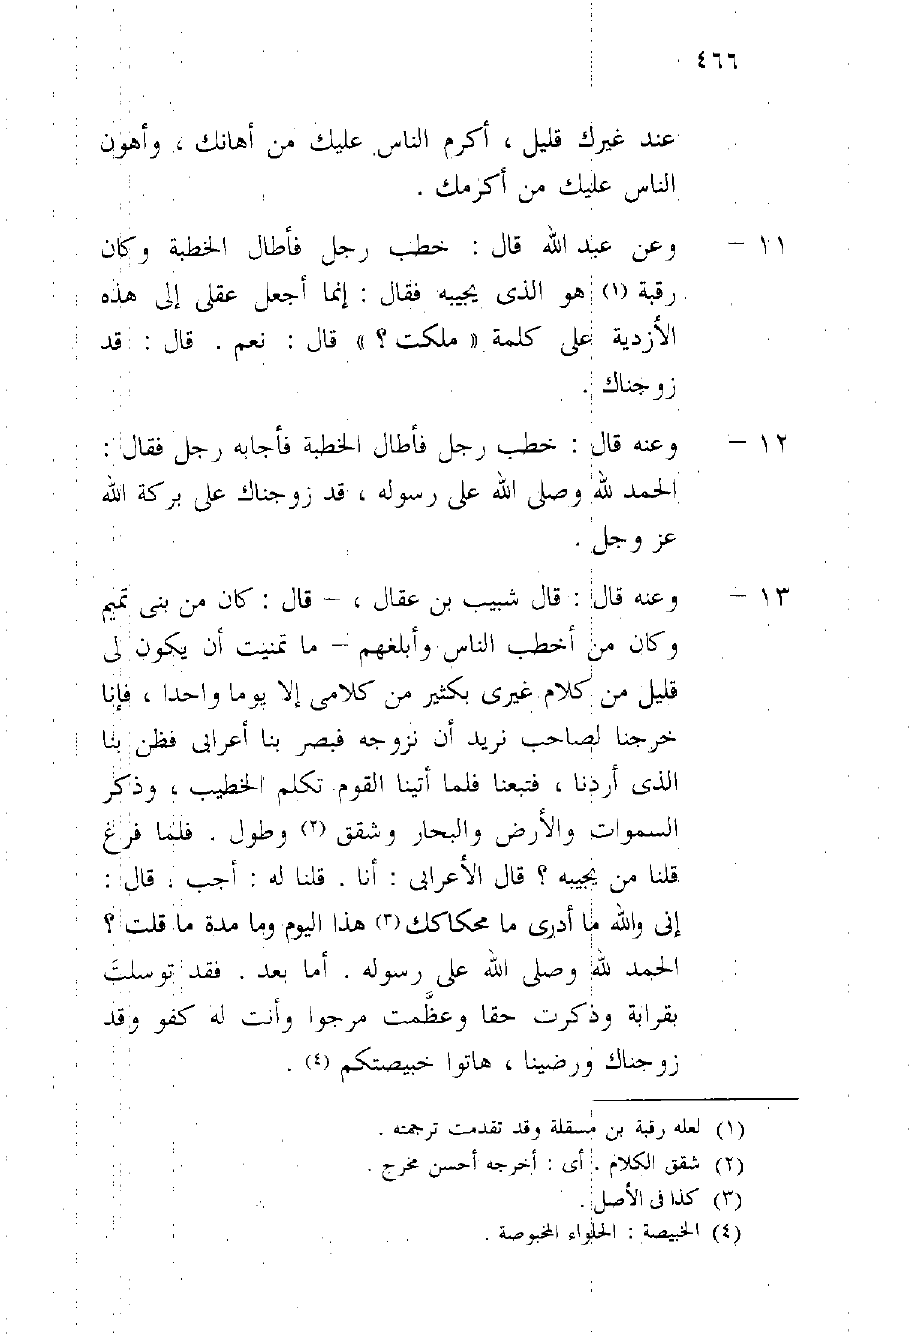 ٤٦٦
عند غيرك قليل ، أكرم الناس عليك من أهانك ، وأهون
الناس عليك من أكرمك .
١١ – وعن عبد الله قال : خطب رجل فأطال الخطبة وكان
رقبة (١) هو الذى يجيبه فقال : إنما أجعل عقلى إلى هذه
الأزدية على كلمة « ملكت ؟ » قال : نعم . قال : قد
زوجناك .
١٢ – وعنه قال : خطب رجل فأطال الخطبة فأجابه رجل فقال :
الحمد لله وصلى الله على رسوله ، قد زوجناك على بركة الله
عز وجل .
١٣ – وعنه قال : قال شبيب بن عقال ، – قال : كان من بنى تميم
وكان من أخطب الناس وأبلغهم – ما تمنيت أن يكون لى
قليل من كلام غيرى بكثير من كلامى إلا يوما واحدا ، فإنا
خرجنا لصاحب نريد أن نزوجه فبصر بنا أعرابى فظن بنا
الذى أردنا ، فتبعنا فلما أتينا القوم تكلم الخطيب ، وذكر
السموات والأرض والبحار وشقق (٢) وطول . فلما فرغ
قلنا من يجيبه ؟ قال الأعرابى : أنا . قلنا له : أجب . قال :
إنى والله ما أدرى ما محكاكك (٣) هذا اليوم وما مدة ما قلت ؟
الحمد لله وصلى الله على رسوله . أما بعد . فقد توسلت
بقرابة وذكرت حقا وعظَّمت مرجوا وأنت له كفو وقد
زوجناك ورضينا ، هاتوا خبيصتكم (٤) .
(١) لعله رقبة بن مسقلة وقد تقدمت ترجمته .
(٢) شقق الكلام . أى : أخرجه أحسن مخرج .
(٣) كذا فى الأصل .
(٤) الخبيصة : الحلواء المخبوصة .